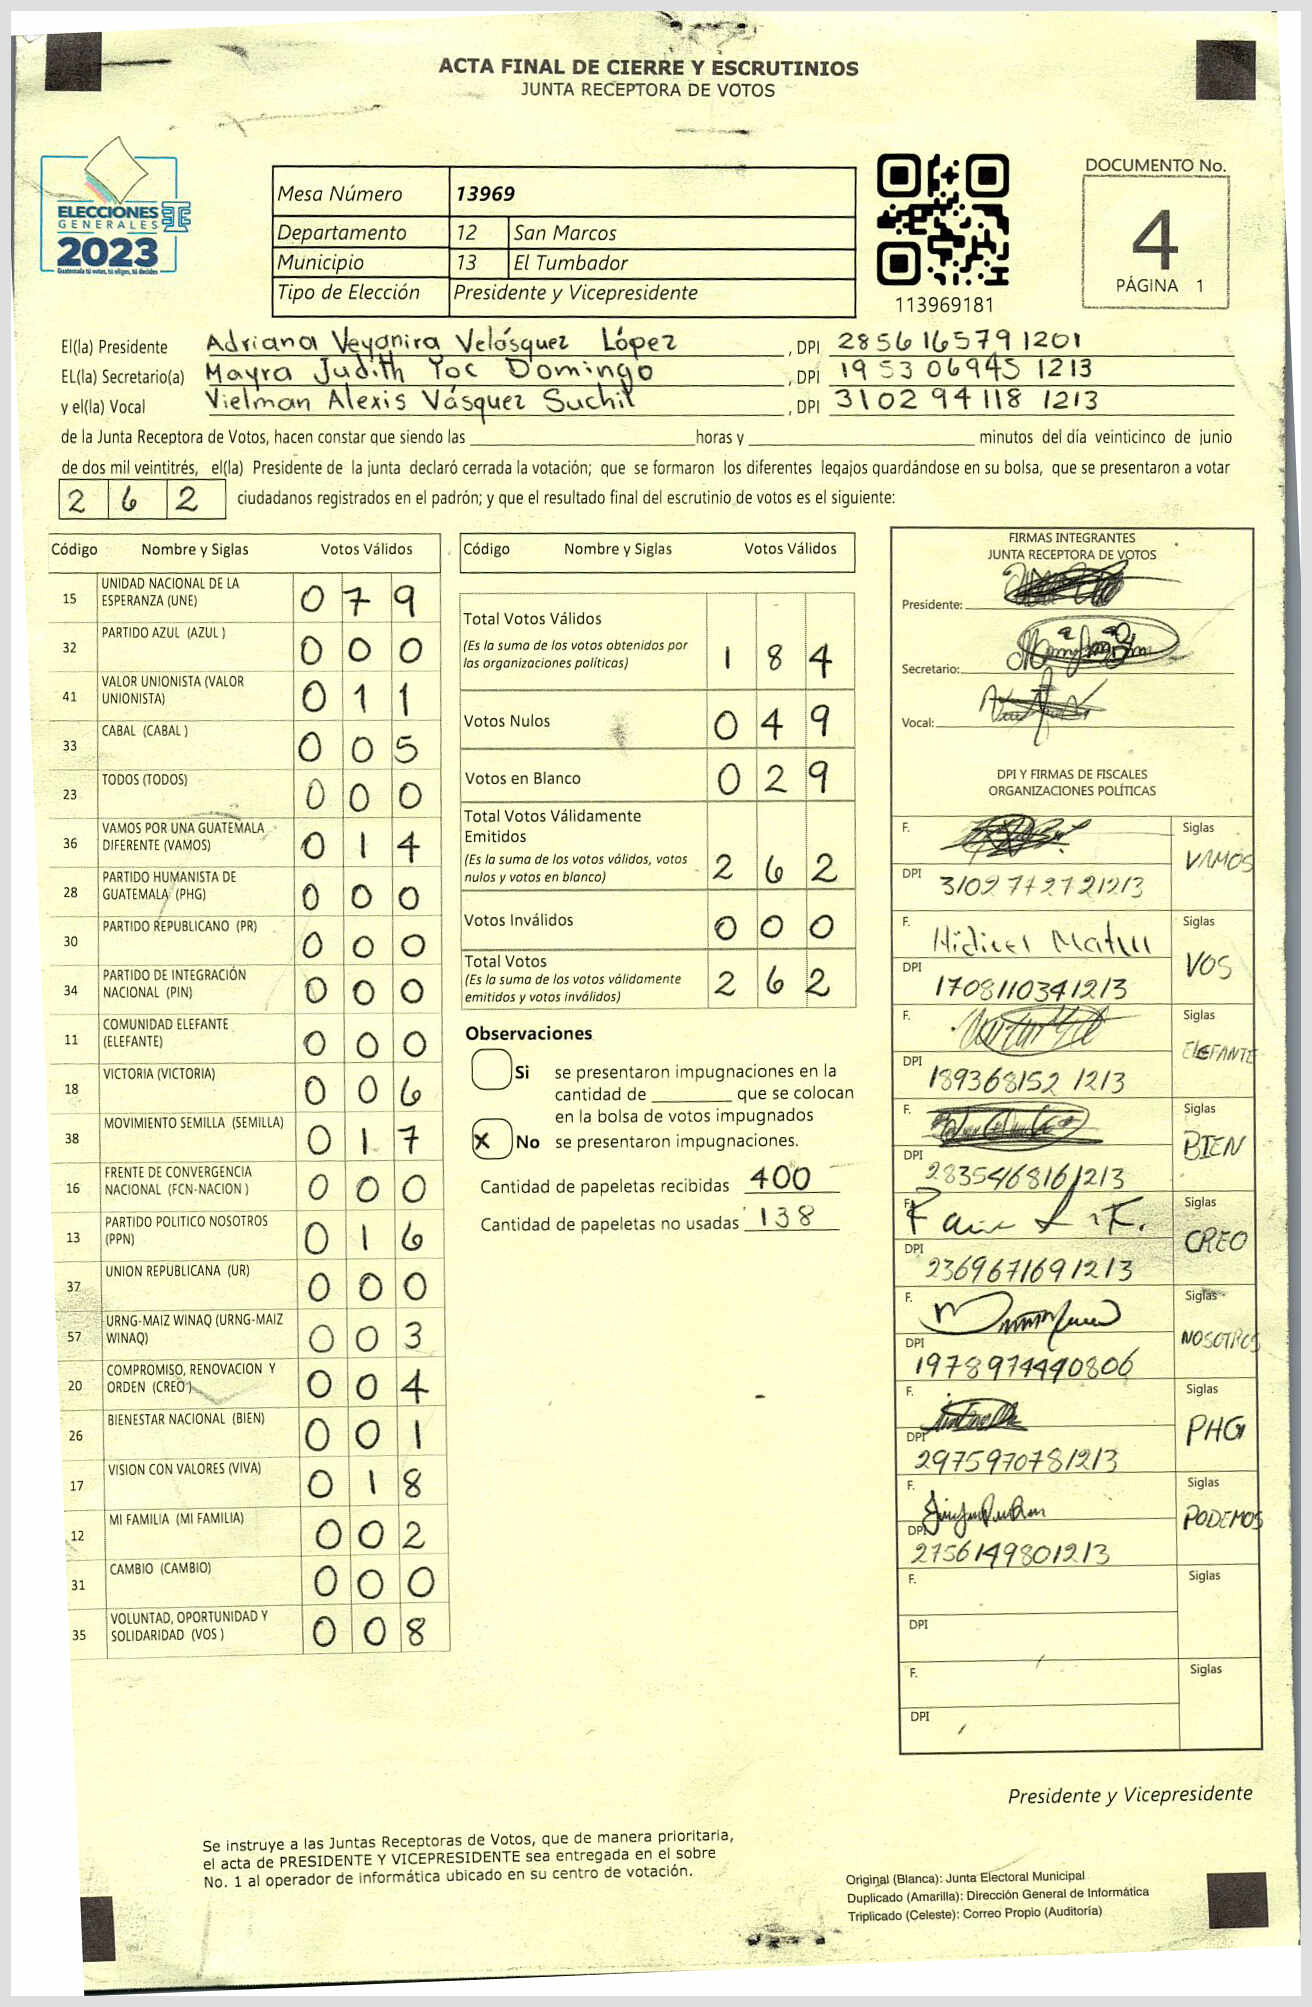 ACTA FINAL DE CIERRE Y ESCRUTINIOS
JUNTA RECEPTORA DE VOTOS
ELECCIONES
GENERALES
2023
Guatemala tú votas, tú eliges, tú decides
Mesa Número 13969
Departamento 12 San Marcos
Municipio 13 El Tumbador
Tipo de Elección Presidente y Vicepresidente
113969181
DOCUMENTO No.
4
PÁGINA 1
El(la) Presidente Adriana Veyanira Velásquez López, DPI 2856165791201
EL(la) Secretario(a) Mayra Judith Yoc Domingo, DPI 1953069451213
y el(la) Vocal Vielman Alexis Vásquez Suchil, DPI 3102941181213
de la Junta Receptora de Votos, hacen constar que siendo las ____ horas y ____ minutos del día veinticinco de junio
de dos mil veintitrés, el(la) Presidente de la junta declaró cerrada la votación; que se formaron los diferentes legajos guardándose en su bolsa, que se presentaron a votar
262 ciudadanos registrados en el padrón; y que el resultado final del escrutinio de votos es el siguiente:
Código Nombre y Siglas Votos Válidos
15 UNIDAD NACIONAL DE LA ESPERANZA (UNE) 079
32 PARTIDO AZUL (AZUL ) 000
41 VALOR UNIONISTA (VALOR UNIONISTA) 011
33 CABAL (CABAL ) 005
23 TODOS (TODOS) 000
36 VAMOS POR UNA GUATEMALA DIFERENTE (VAMOS) 014
28 PARTIDO HUMANISTA DE GUATEMALA (PHG) 000
30 PARTIDO REPUBLICANO (PR) 000
34 PARTIDO DE INTEGRACIÓN NACIONAL (PIN) 000
11 COMUNIDAD ELEFANTE (ELEFANTE) 000
18 VICTORIA (VICTORIA) 006
38 MOVIMIENTO SEMILLA (SEMILLA) 017
16 FRENTE DE CONVERGENCIA NACIONAL (FCN-NACION ) 000
13 PARTIDO POLITICO NOSOTROS (PPN) 016
37 UNION REPUBLICANA (UR) 000
57 URNG-MAIZ WINAQ (URNG-MAIZ WINAQ) 003
20 COMPROMISO, RENOVACION Y ORDEN (CREO ) 004
26 BIENESTAR NACIONAL (BIEN) 001
17 VISION CON VALORES (VIVA) 018
12 MI FAMILIA (MI FAMILIA) 002
31 CAMBIO (CAMBIO) 000
35 VOLUNTAD, OPORTUNIDAD Y SOLIDARIDAD (VOS ) 008
Código Nombre y Siglas Votos Válidos
Total Votos Válidos
(Es la suma de los votos obtenidos por las organizaciones políticas) 184
Votos Nulos 049
Votos en Blanco 029
Total Votos Válidamente Emitidos
(Es la suma de los votos válidos, votos nulos y votos en blanco) 262
Votos Inválidos 000
Total Votos
(Es la suma de los votos válidamente emitidos y votos inválidos) 262
Observaciones
Si se presentaron impugnaciones en la
cantidad de ____ que se colocan
en la bolsa de votos impugnados
X No se presentaron impugnaciones.
Cantidad de papeletas recibidas 400
Cantidad de papeletas no usadas 138
FIRMAS INTEGRANTES
JUNTA RECEPTORA DE VOTOS
Presidente:
Secretario:
Vocal:
DPI Y FIRMAS DE FISCALES
ORGANIZACIONES POLÍTICAS
F. Siglas VAMOS
DPI 3102772721213
F. Siglas VOS
DPI 1708110341213
F. Siglas ELEFANTE
DPI 1893681521213
F. Siglas BIEN
DPI 2835468161213
F. Siglas CREO
DPI 2369671691213
F. Siglas NOSOTROS
DPI 1978974490806
F. Siglas PHG
DPI 2975970781213
F. Siglas PODEMOS
DPI 2756149801213
F. Siglas
DPI
F. Siglas
DPI
Presidente y Vicepresidente
Se instruye a las Juntas Receptoras de Votos, que de manera prioritaria,
el acta de PRESIDENTE Y VICEPRESIDENTE sea entregada en el sobre
No. 1 al operador de informática ubicado en su centro de votación.
Original (Blanca): Junta Electoral Municipal
Duplicado (Amarilla): Dirección General de Informática
Triplicado (Celeste): Correo Propio (Auditoría)